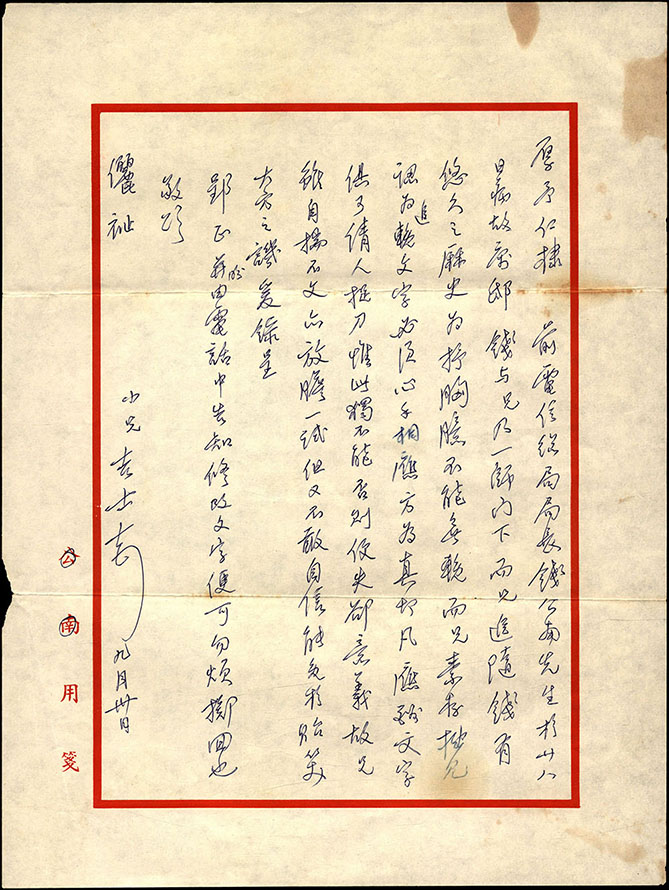 厚予仁棣　前電信總局局長錢公南先生於廿八
日病故寓邸　錢与兄乃一師門下而兄追隨錢有
悠久之歷史為抒胸臆不能無輓而兄素存拙見
認為追輓文字必須心手相應方為真切凡應酬文字
俱可倩人捉刀惟此獨不能否則便失卻意義故兄
雖自揣不文亦放膽一試但又不敢自信能免於貽笑
大方之譏爰錄呈
郢正並盼由電話中告知修改文字便可勿煩擲回也
敬頌
儷祉
小兄　九月卅日
公南用箋